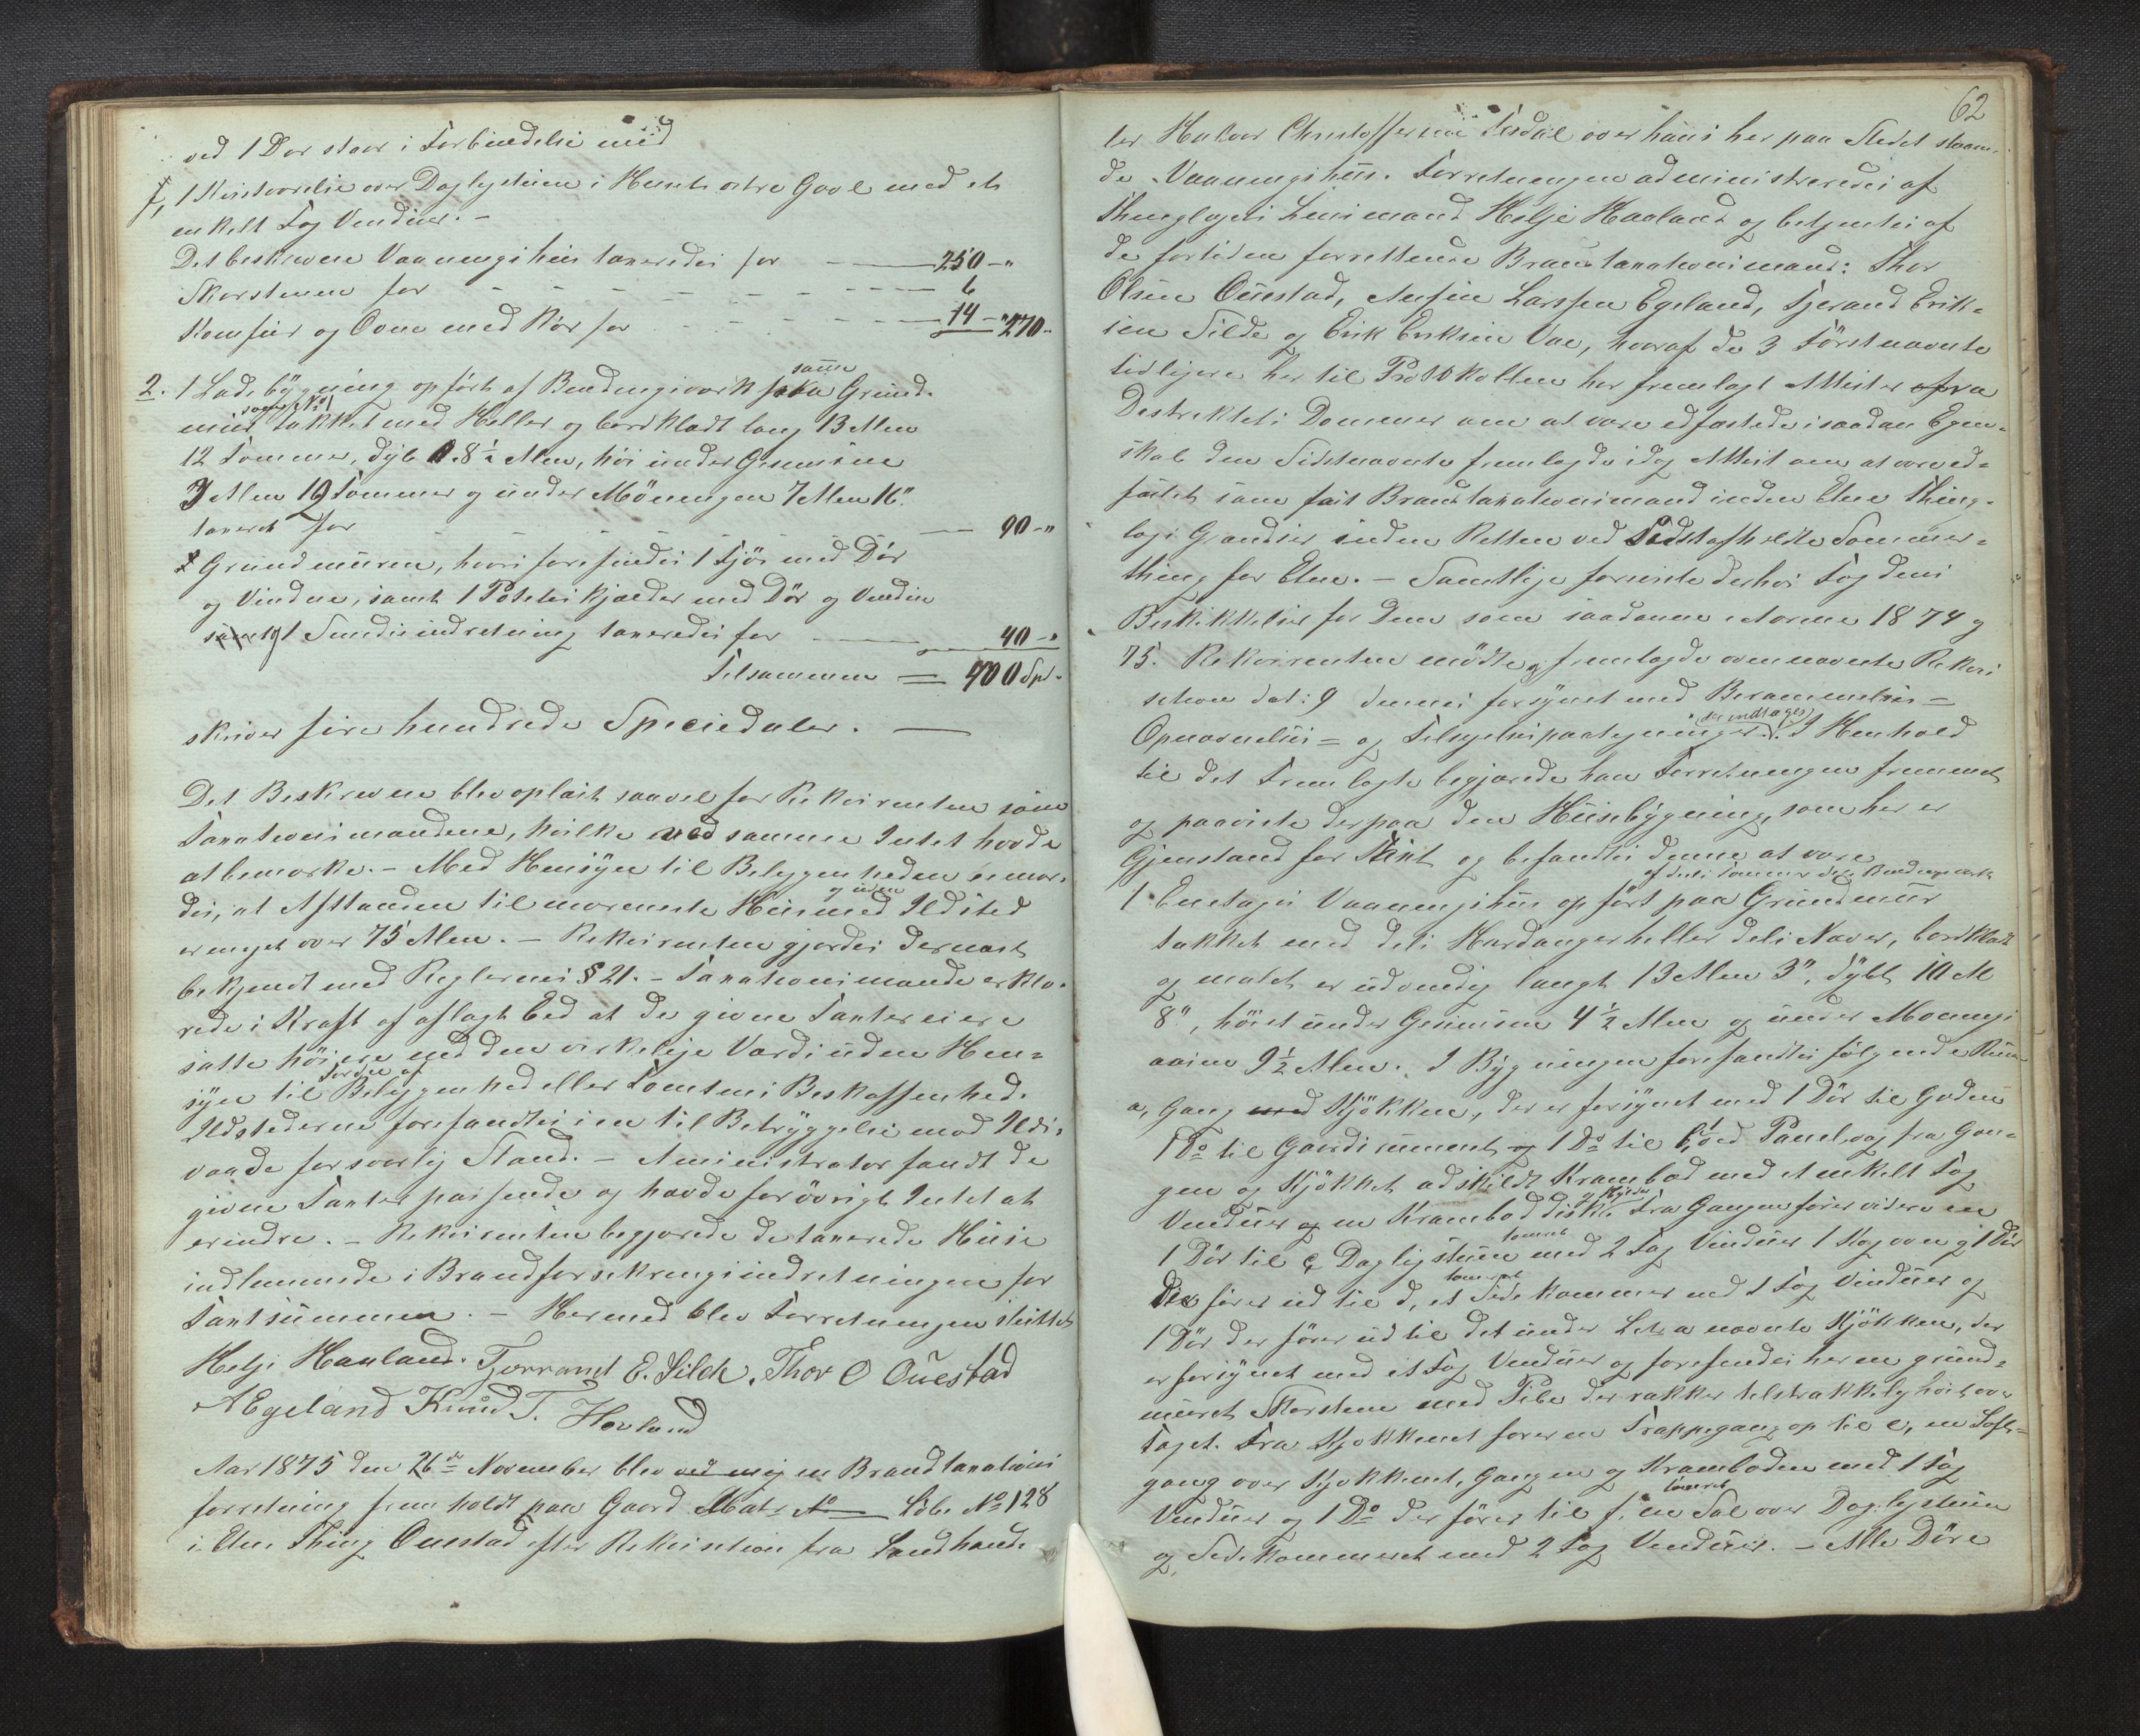 ved 1 Dør staar i Forbindelse med
f, 1 Kvistværelse over Daglystuen i Husets østre Gavl med et
enkelt Fag Vinduer. –
Det beskrevne Vaaningshus taxeredes for — 250 – "
Skorstenen for - - - - - - - — 6
Komfur og Ovne med Rør for - - - - — 14 – " 270 –
2. 1 Ladebygning opført af Bindingsværk paa samme Grund-
mur takket med Heller og bordklædt lang 13 Alen
12 Tommer, dyb 8½ Alen, høi under Gesimsene
3 Alen 19 Tommer og under Mønningen 7 Alen 16".
taxeret for - - - - — 90 – "
Grundmuren, hvori forefindes 1 Fjøs med Dør
og Vindue, samt 1 Potetes kjælder med Dør og Vindue
1 Smedieindretning taxeredes for — 40 – "
Tilsammen = 400 Spd.
skriver fire hundrede Speciedaler. —
Det Beskrevne blev oplæst saavel for Rekvirenten som
Taxationsmændene, hvilke ved samme Intet havde
at bemærke. – Med Hensyn til Beliggenheden bemær-
kes, at Afstanden til nærmeste Huse med og uden Ildsted
er meget over 75 Alen. – Rekvirenten gjordes dernæst
bekjendt med Reglernes § 21. – Taxationsmændene erklæ-
rede i Kraft af aflagt Eed at de givne Taxter ei ere
satte høiere end den virkelige Værdi uden Hen-
syn til Fordele af Beliggenhed eller Tomtens Beskaffenhed.
Ildstederne forefandtes i en til Betryggelse mod Ilds-
vaade forsvarlig Stand. – Aministrator fandt de
givne Taxter passende og havde forøvrigt Intet at
erindre. – Rekvirenten begjærede de taxerede Huse
indlemmede i Brandforsikringsindretningen for
Taxtsummen. – Hermed blev Forretningen sluttet
Helje Haaland. Tjerrand E. Silde. Thor O Ouestad
AEgeland Knud T. Hovland
Aar 1875 den 26de November blev en Brandtaxations
forretning fremholdt paa Gaard Mat. No Löbe No 128
i Etne Thing Ouestad efter Rekvisition fra Landhand-
62
ler Halvor Christoffersen Tesdal over hans her paa Stedet staaen-
de Vaaningshus. Forretningen administreredes af
Thinglagets Lensmand Helje Haaland og betjentes af
de fortiden forrettende Brandtaxationsmænd: Thor
Olsen Ouestad, Anfin Larssen Egeland, Tjerand Erik-
sen Silde og Erik Eriksen Vae, hvoraf de 3 Førstnævnte
tidligere her til Protokollen har fremlagt Attester fra
Destriktets Dommer om at være edfæstede i saadan Egen-
skab den Sidstnævnte fremlagde idag Attest om at være ed-
fæstet som fast Brandtaxationsmand inden Etne Thing-
lags Grændser inden Retten ved Sidstafholdte Sommer-
thing for Etne. – Samtlige foreviste derhos Fogdens
Beskikkelser for dem som saadanne Aarene 1874 og
75. Rekvirenten mødte og fremlagde ovennævnte Rekvi
sition dat: 9 dennes forsynet med Berammelses –
Opnævnelses = og Tilsigelsespaategninger der indtages. I Henhold
til det Fremlagte begjærede han Forretningen fremmet
og paaviste derpaa den Husebygning, som her er
Gjenstand for Taxt og befandtes denne at være
1 Enetages Vaaningshus af dels Tømmer dels Bindingsværk opført paa Grundmur
takket med dels Hardangerheller dels Næver, bordklædt
og malet er udvendig langt 13 Alen 3", dybt 10 Al
8", høiet under Gesimsen 4½ Alen og under Mønnings
aasen 9½ Alen. I Bygningen forefandtes følgende Rum
a, Gang Kjøkken, der er forsynet med 1 Dør til Gaden
1 Do til Gaardsrummet 1 Do til b, et ved Panel og fra Gan-
gen og Kjøkket adskildt Krambod med et enkelt Fag
Vinduer og en Kramboddisk og Hylder. Fra Gangen fører videre en
1 Dør til c Daglystuen tømret med 2 Fag Vinduer 1 Kogeovn og 1 Dør
der fører ud til d, et tømret Sidekammer med 1 Fag Vinduer og
1 Dør der fører ud til det under Lit. a nævnte Kjøkken, der
er forsynet med et Fag Vinduer og forefindes her en grund-
muret Skorsten med Pibe der rækker tilstrækkelig høit over
Taget. Fra Kjøkkenet fører en Trappegang op til e, en Loft-
gang over Kjøkkenet, Gangen og Kramboden med 1 Fag
Vinduer og 1 Do der fører til f, en tømret Sal over Daglystuen
og Sidekammeret med 2 Fag Vinduer. – Alle Döre